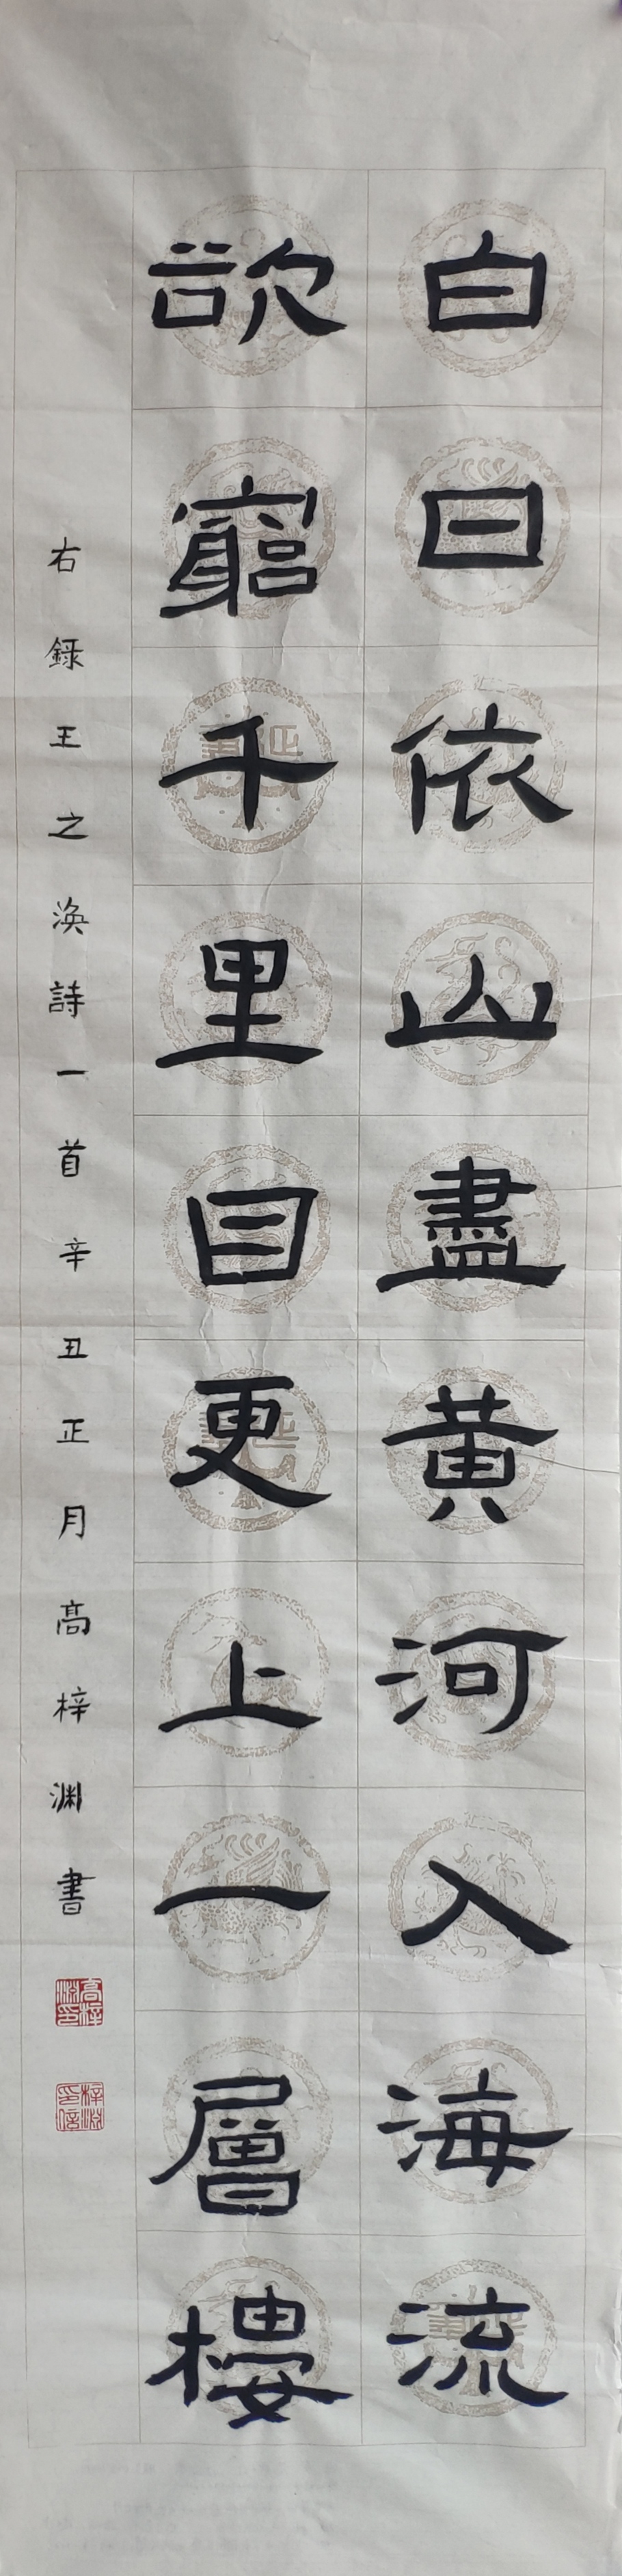 白日依山盡黄河入海流
欲窮千里目更上一層樓
右録王之渙詩一首辛丑正月高梓渊書
高梓渊印
梓渊印信